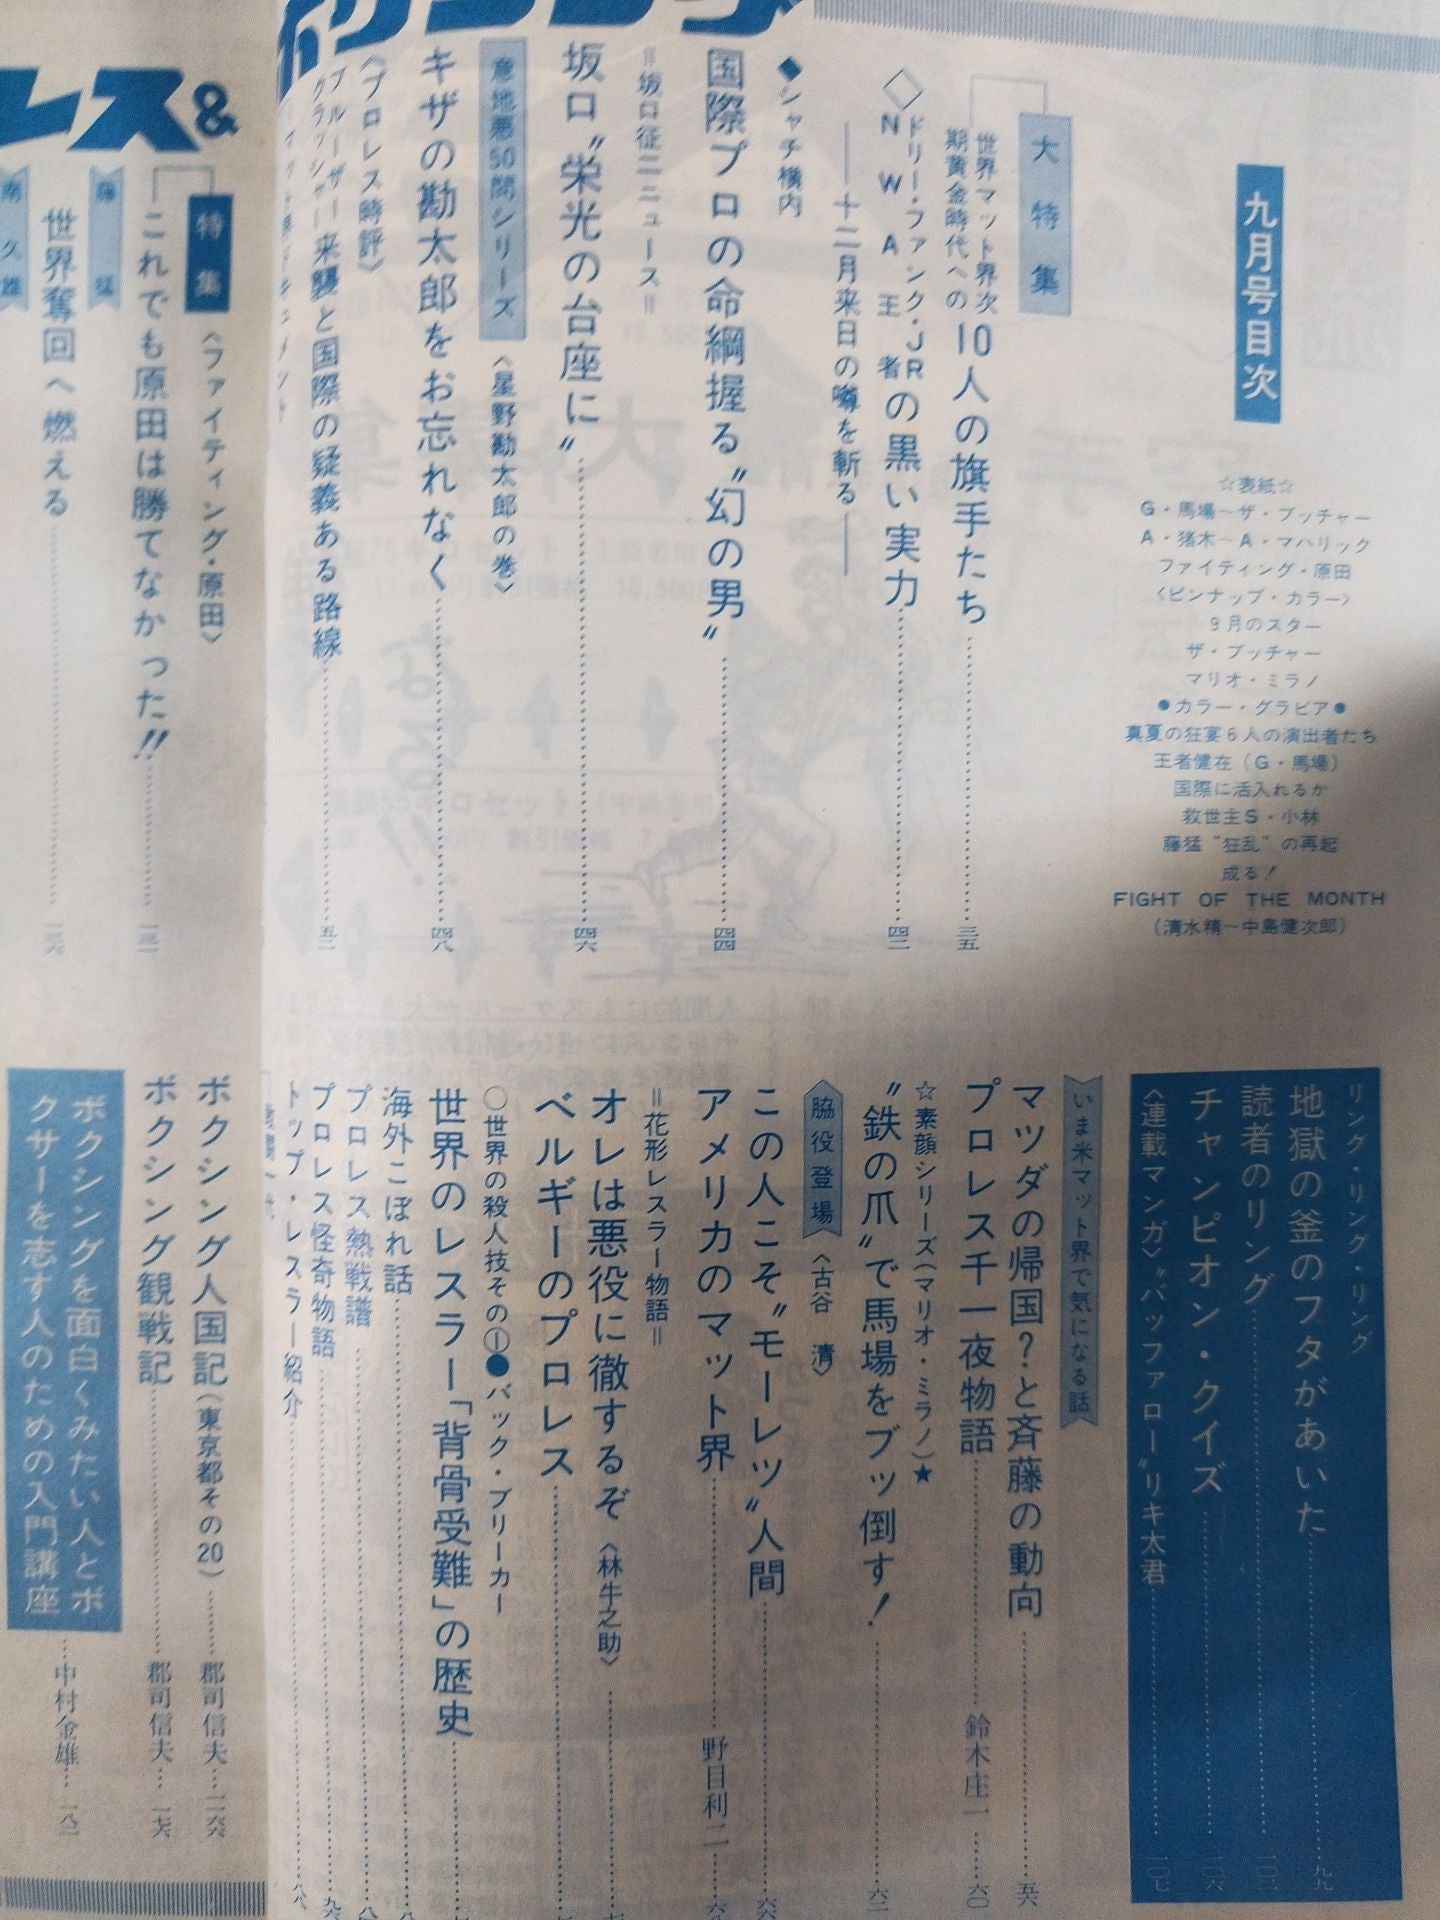 ボクシング
九月号目次
☆表紙☆
G・馬場〜ザ・ブッチャー
A・猪木〜A・マハリック
ファイティング・原田
〈ピンナップ・カラー〉
9月のスター
ザ・ブッチャー
マリオ・ミラノ
●カラー・グラビア●
真夏の狂宴6人の演出者たち
王者健在(G・馬場)
国際に活入れるか
救世主S・小林
藤猛“狂乱”の再起
成る!
FIGHT OF THE MONTH
(清水精〜中島健次郎)
大特集
世界マット界次
期黄金時代への10人の旗手たち……三五
◇ドリー・ファンク・JR
NWA王者の黒い実力……四二
――十二月来日の噂を斬る――
◆シャチ横内
国際プロの命綱握る“幻の男”……四四
=坂口征二ニュース=
坂口“栄光の台座に”……四六
意地悪50問シリーズ〈星野勘太郎の巻〉
キザの勘太郎をお忘れなく……四八
〈プロレス時評〉
ブルーザー
クラッシャー来襲と国際の疑義ある路線……五二
リング・リング・リング
地獄の釜のフタがあいた……九九
読者のリング……一〇二
チャンピオン・クイズ……一〇六
〈連載マンガ〉“バッファロー”リキ太君……一〇七
いま米マット界で気になる話
マツダの帰国?と斉藤の動向……五六
プロレス千一夜物語……鈴木庄一……六〇
☆素顔シリーズ(マリオ・ミラノ)★
“鉄の爪”で馬場をブッ倒す!……六二
脇役登場〈古谷 清〉
この人こそ“モーレツ”人間……六六
アメリカのマット界……野目利二……六八
=花形レスラー物語=
オレは悪役に徹するぞ〈林牛之助〉……
ベルギーのプロレス……
○世界の殺人技その①●バック・ブリーカー
世界のレスラー「背骨受難」の歴史……
海外こぼれ話……
プロレス熱戦譜……
プロレス怪奇物語……九六
トップ・レスラー紹介……八八
レス&
特集〈ファイティング・原田〉
これでも原田は勝てなかった!!……
藤猛
世界奪回へ燃える……
南久雄
ボクシング人国記(東京都その20)……郡司信夫…一六六
ボクシング観戦記……郡司信夫…一七六
ボクシングを面白くみたい人とボ
クサーを志す人のための入門講座……中村金雄…一八二